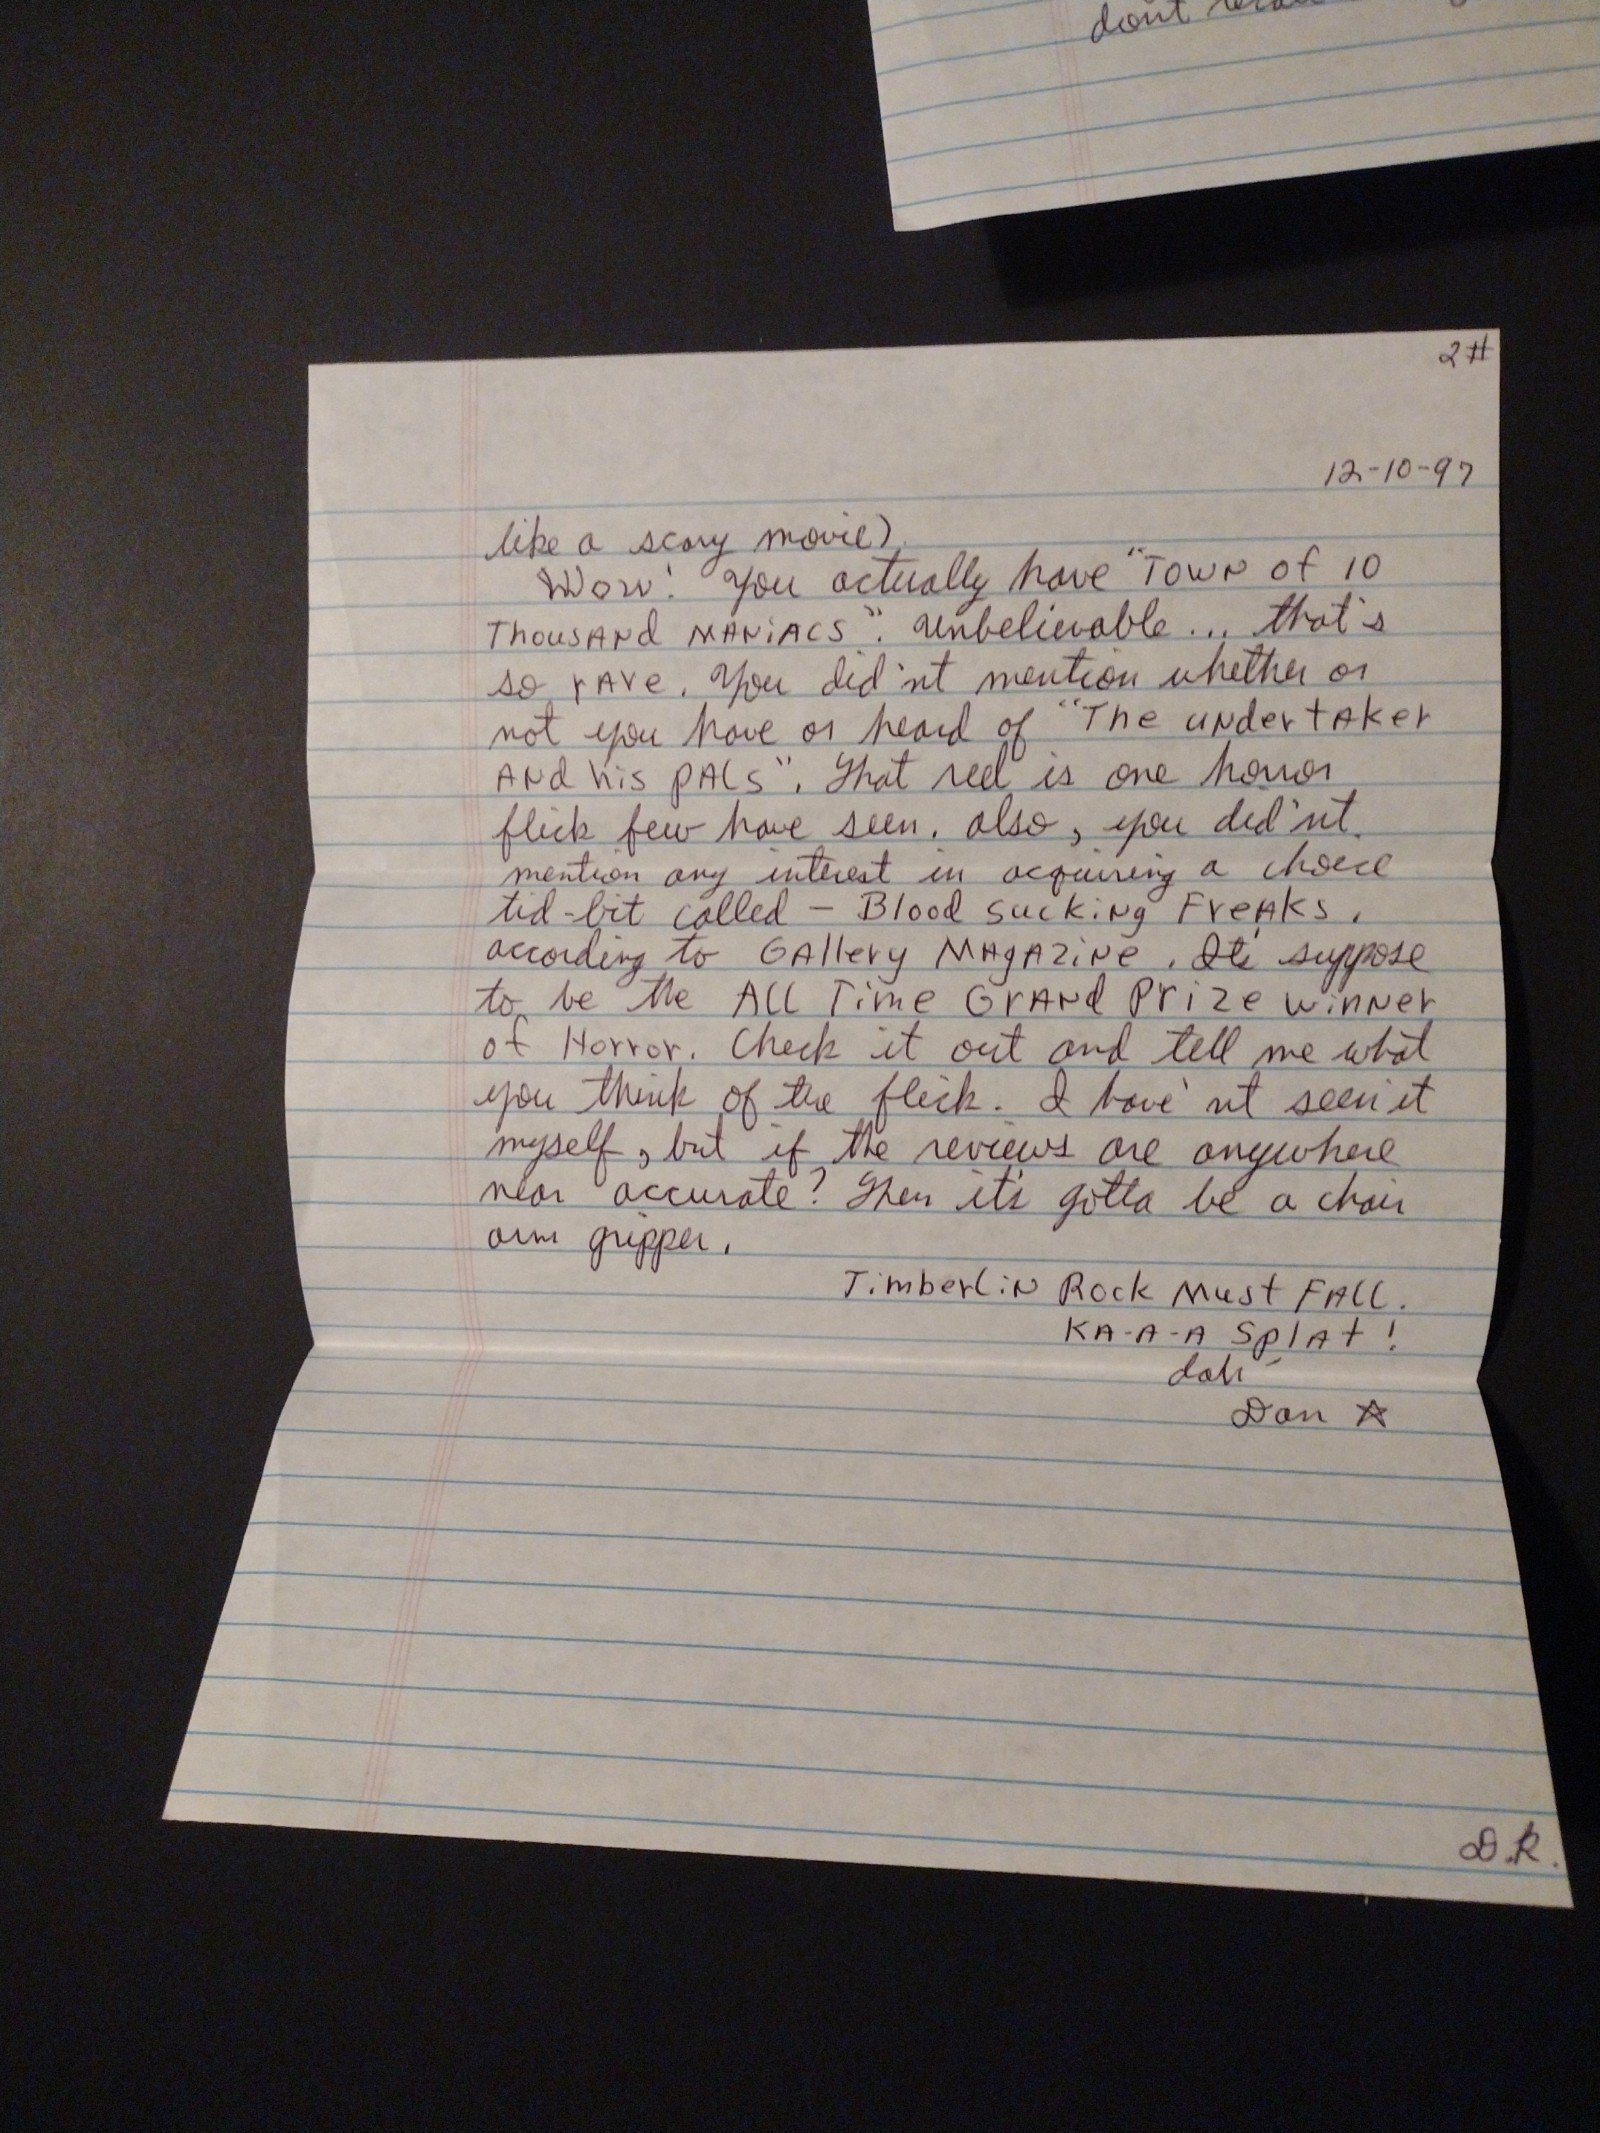 dont
2#
12-10-97
like a scary movie)
Wow! You actually have "Town of 10
Thousand Maniacs". Unbelievable... that's
so rare. You did'nt mention whether or
not you have or heard of "The undertaker
And his pals". That reel is one horror
flick few have seen. also, you did'nt
mention any interest in acquiring a choice
tid-bit called - Blood Sucking Freaks.
according to Gallery Magazine. It's suppose
to be the All Time Grand Prize winner
of Horror. Check it out and tell me what
you think of the flick. I have'nt seen it
myself, but if the reviews are anywhere
near accurate? Then it's gotta be a chair
arm gripper.
Timberlin Rock Must Fall.
KA-A-A Splat!
Dan ☆
D.R.